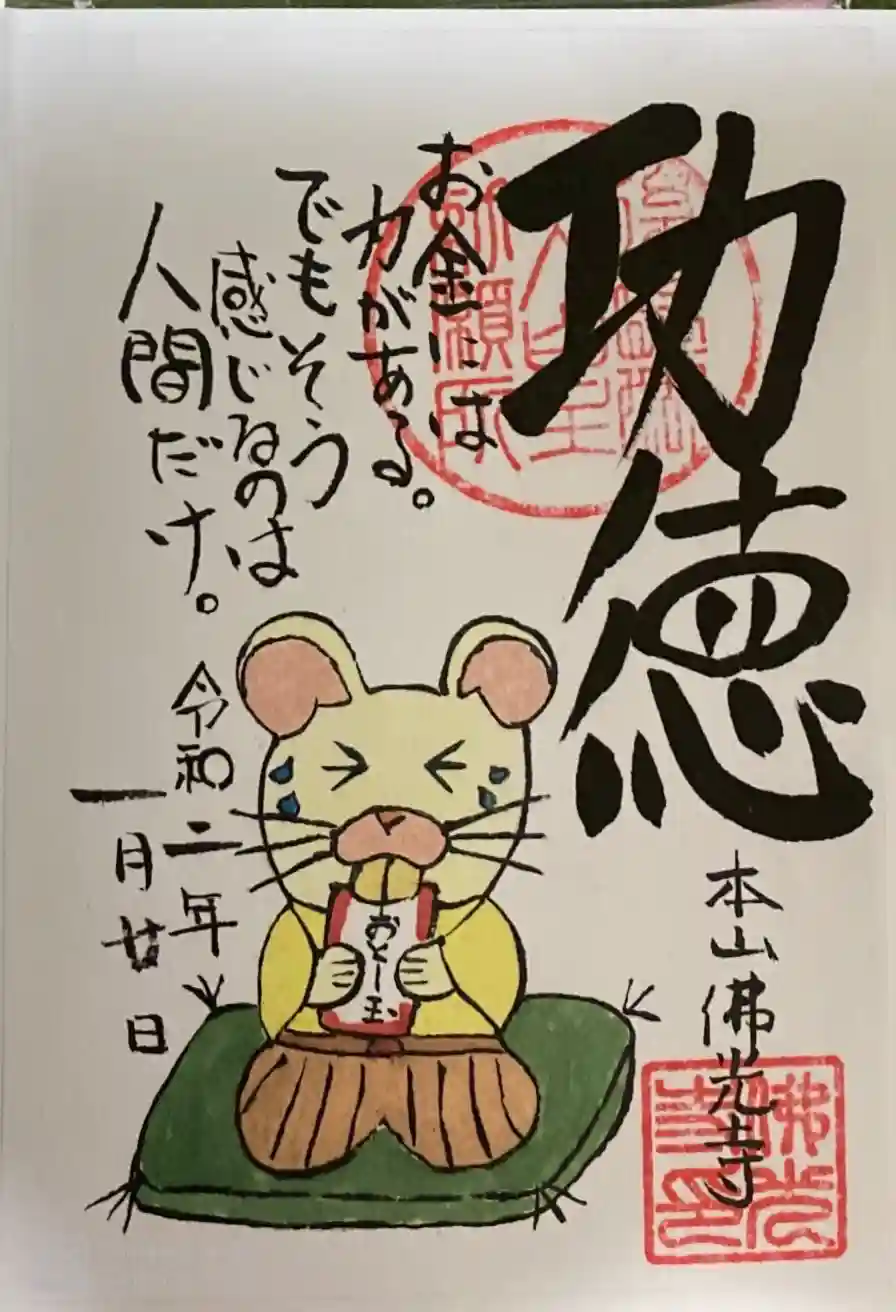 功徳
本山佛光寺
佛光
寺印
お金には
力がある。
でもそう
感じるのは
人間だけ。
令和二年
一月廿日
おとし玉